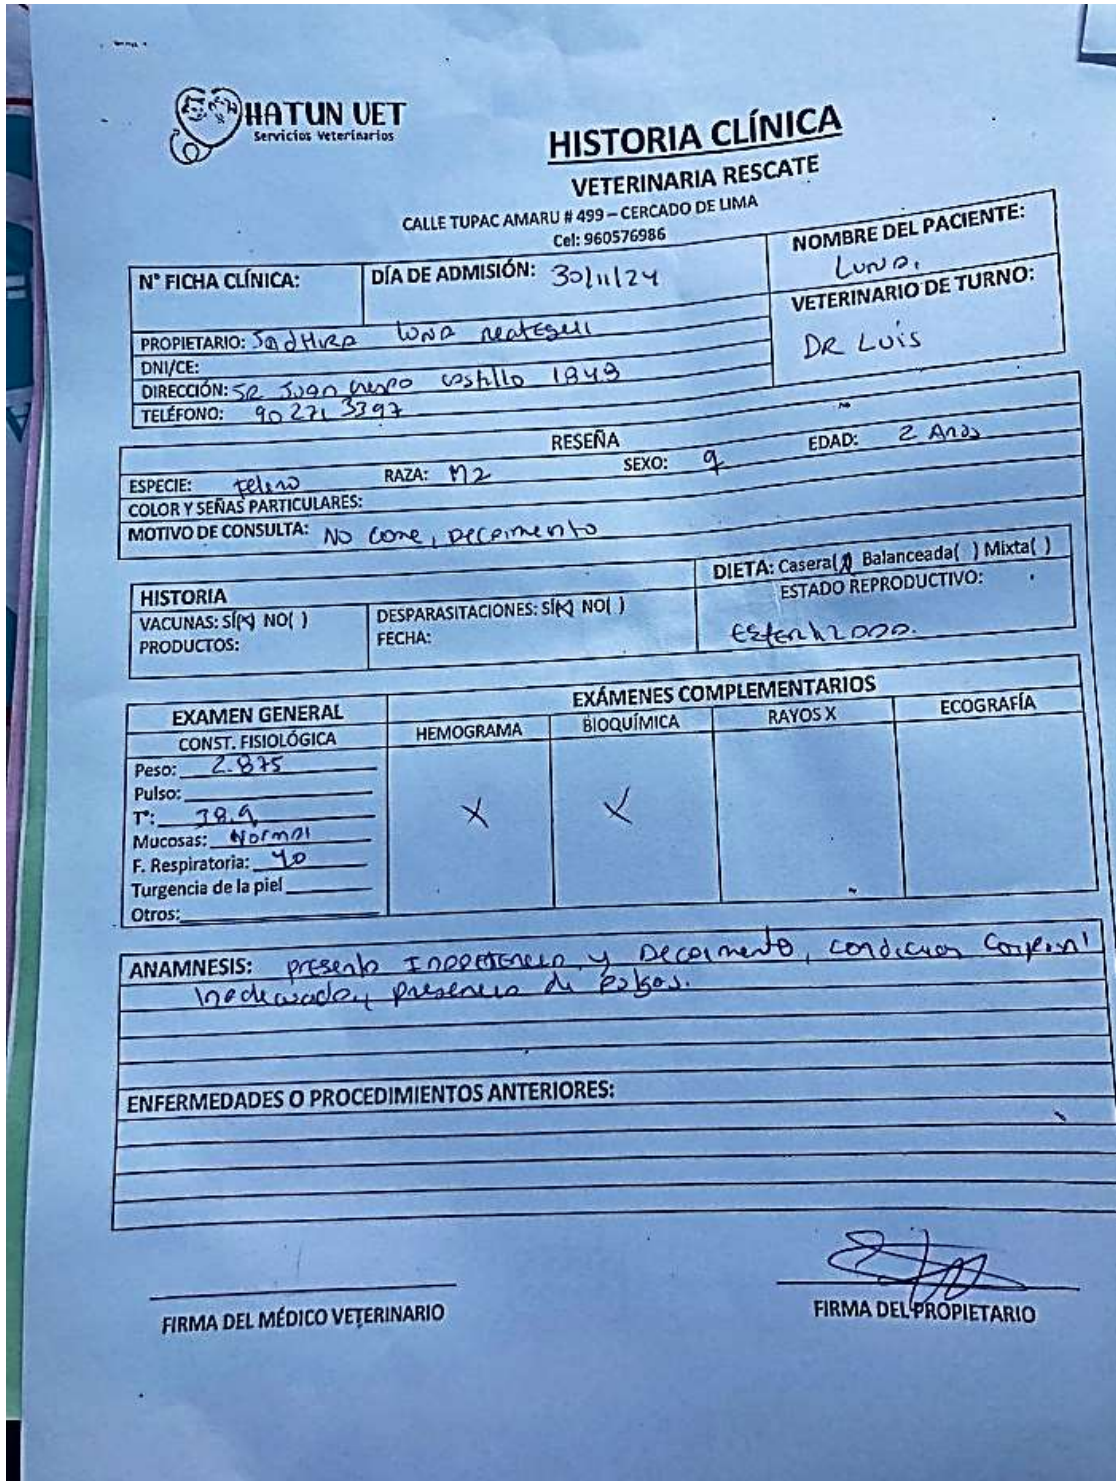 HATUN VET
Servicios Veterinarios
HISTORIA CLÍNICA
VETERINARIA RESCATE
CALLE TUPAC AMARU # 499 – CERCADO DE LIMA
Cel: 960576986
N° FICHA CLÍNICA:
DÍA DE ADMISIÓN: 30/11/24
NOMBRE DEL PACIENTE:
LUNA.
VETERINARIO DE TURNO:
DR LUIS
PROPIETARIO: Luna Reategui
DNI/CE:
DIRECCIÓN: Juan Crespo Castillo 1848
TELÉFONO: 90 271 3397
RESEÑA
ESPECIE: Felino RAZA: M2 SEXO: ♀ EDAD: 2 Años
COLOR Y SEÑAS PARTICULARES:
MOTIVO DE CONSULTA: No come, Decaimento
HISTORIA
VACUNAS: SÍ(X) NO( )
PRODUCTOS:
DESPARASITACIONES: SÍ(X) NO( )
FECHA:
DIETA: Casera(X) Balanceada( ) Mixta( )
ESTADO REPRODUCTIVO:
Esterilizado.
EXAMEN GENERAL
CONST. FISIOLÓGICA
Peso: 2.875
Pulso:
T°: 38.9
Mucosas: Normal
F. Respiratoria: 40
Turgencia de la piel
Otros:
EXÁMENES COMPLEMENTARIOS
HEMOGRAMA BIOQUÍMICA RAYOS X ECOGRAFÍA
X X
ANAMNESIS: presenta Inapetencia y Decaimento, condicion Corporal
Inadecuada, presencia de Pulgas.
ENFERMEDADES O PROCEDIMIENTOS ANTERIORES:
FIRMA DEL MÉDICO VETERINARIO
FIRMA DEL PROPIETARIO